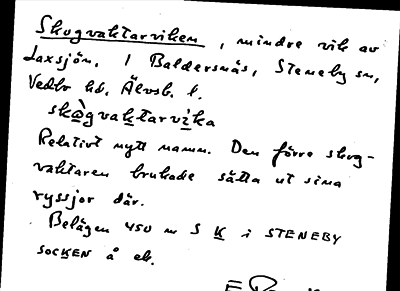 Skogvaktarviken, mindre vik av
Laxsjön. I Baldersnäs, Steneby sn,
Vedbo hd, Älvsb. l.
skògvaktarvika
Relativt nytt namn. Den förre skog-
vaktaren brukade sätta ut sina
ryssjor där.
Belägen 450 m S K i STENEBY
SOCKEN å ek.